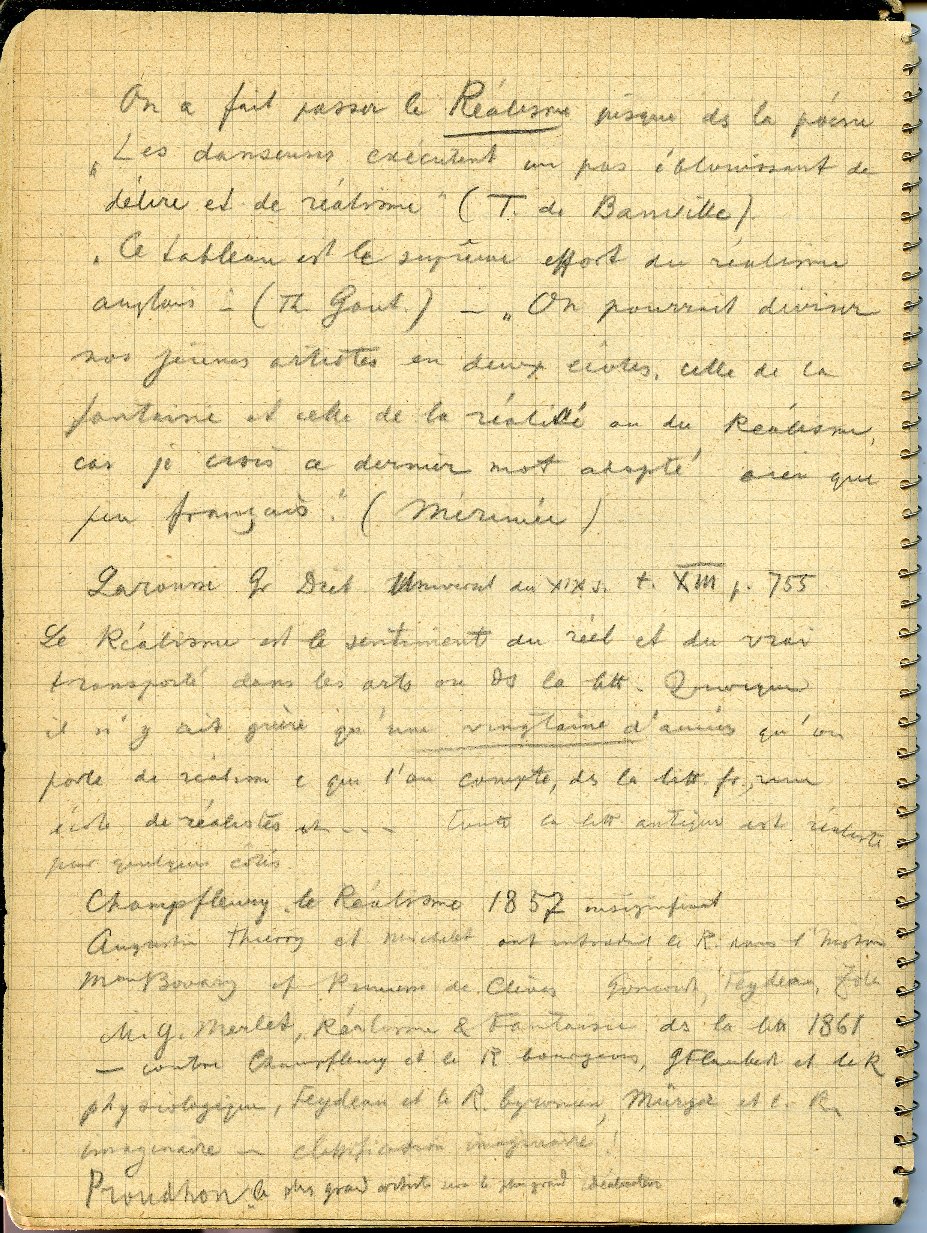 On a fait passer le Réalisme jusque ds la poésie
„Les danseuses exécutent un pas éblouissant de
délire et de réalisme" (T. de Banville).
„Ce tableau est le suprême effort du réalisme
anglais - (Th. Gaut.) — „On pourrait diviser
nos jeunes artistes en deux écoles, celle de la
fantaisie et celle de la réalité ou du Réalisme,
car je crois ce dernier mot adopté bien que
peu français." (Mérimée)
Larousse Gr Dict Universel du XIX s. t. XIII p. 755
Le Réalisme est le sentiment du réel et du vrai
transporté dans les arts ou ds la litt. Quoique
il n'y ait guère qu'une vingtaine d'années qu'on
parle de réalisme e que l'on compte, ds la litt. fr., une
école de réalistes et --- toute la litt antique est réaliste
par quelques côtés
Champfleury, le Réalisme 1857 insignifiant
Augustin Thierry et Michelet ont introduit le R. dans l'histoire
Mme Bovary cf Princesse de Clèves Goncourt, Feydeau, Zola
M. G. Merlet, Réalisme & Fantaisie ds la litt 1861
— contre Champfleury et le R bourgeois, G Flaubert et le R
physiologique, Feydeau et le R. byronien, Mürger et le R.
imaginaire — classification imaginaire!
Proudhon „le plus grand artiste sera le plus grand idéalisateur